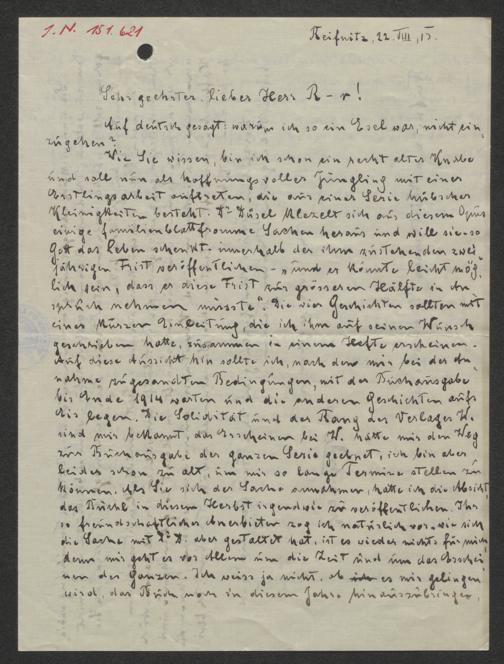 I. N. 151.621
Reifnitz, 22. VIII, 13.
Sehr geehrter, lieber Herr R–r!
Auf deutsch gesagt: warum ich so ein Esel war, nicht ein,
zugehen?
Wie Sie wissen, bin ich schon ein recht alter Knabe
und soll nun als hoffnungsvoller Jüngling mit einer
Erstlingsarbeit auftreten, die aus einer Serie hübscher
Kleinigkeiten besteht. Dr Düsel klezelt sich aus diesem Opus
einige familienblattfromme Sachen heraus und will sie – so
Gott das Leben schenkt – innerhalb der ihm zustehenden zwei
jährigen Frist veröffentlichen – „und es könnte leicht mög,
lich sein, dass er diese Frist zur grösseren Hälfte in An
spruch nehmen müsste". Die vier Geschichten sollten mit
einer kurzen Einleitung, die ich ihm auf seinen Wunsch
geschrieben hatte, zusammen in einem Hefte erscheinen.
Auf diese Aussicht hin sollte ich, nach den mir bei der An,
nahme zugesandten Bedingungen, mit der Buchausgabe
bis Ende 1914 warten und die anderen Geschichten aufs
Eis legen. Die Solidität und der Rang des Verlages W.
sind mir bekannt, das Erscheinen bei W. hätte mir den Weg
zur Buchausgabe der ganzen Serie geebnet, ich bin aber
leider schon zu alt, um mir so lange Termine stellen zu
können. Als Sie sich der Sache annahmen, hatte ich die Absicht
das Büchl in diesem Herbst irgendwie zu veröffentlichen. Ihr
so freundschaftliches Anerbieten zog ich natürlich vor. wie sich
die Sache mit Dr D. aber gestaltet hat, ist es wieder nichts für mich
denn mir geht es vor Allem um die Zeit und um das Erschei
nen des Ganzen. Ich weiss ja nicht, ob es mir gelingen
wird, das Buch noch in diesem Jahre hinauszubringen,